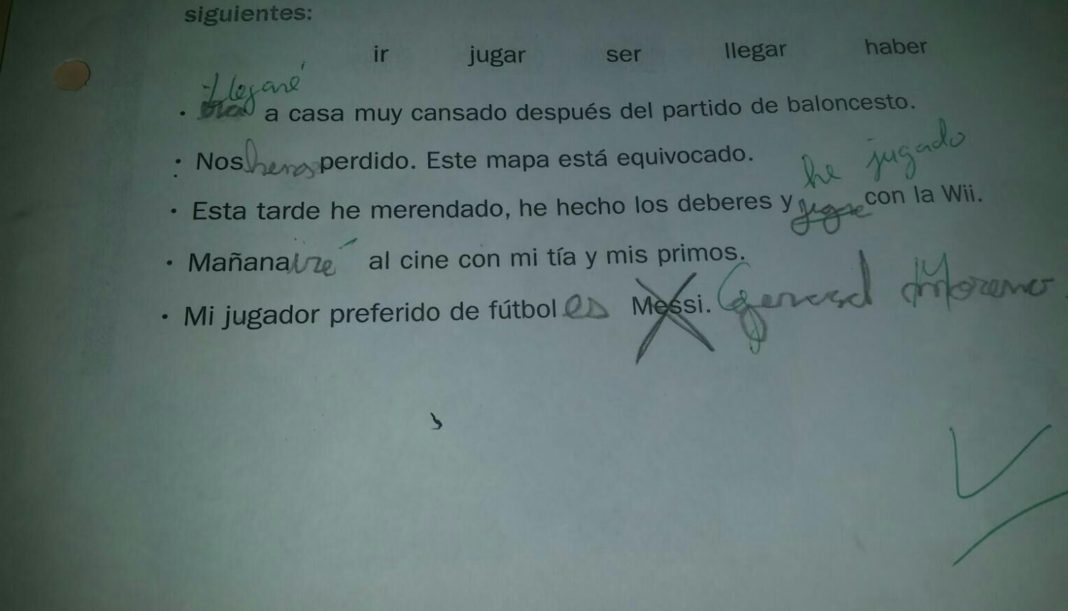 siguientes:
ir jugar ser llegar haber
Llegaré
· a casa muy cansado después del partido de baloncesto.
· Nos hemos perdido. Este mapa está equivocado.
he jugado
· Esta tarde he merendado, he hecho los deberes y jugue con la Wii.
· Mañana iré al cine con mi tía y mis primos.
· Mi jugador preferido de fútbol es Messi. Gerard Moreno